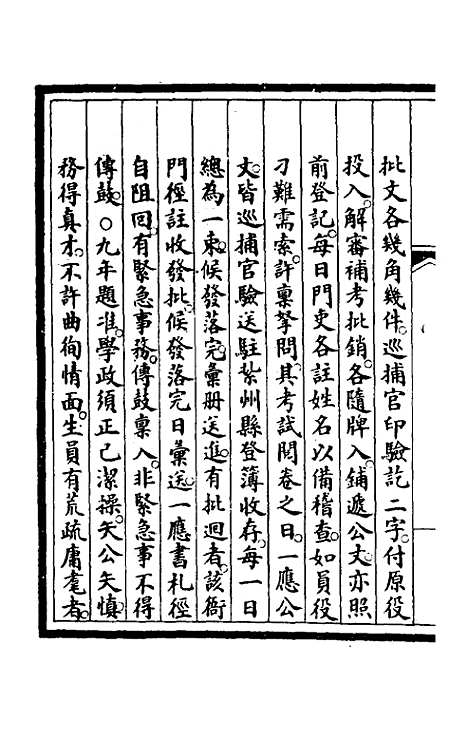 批文各幾角幾件巡捕官印驗訖二字付原役
投入解審補考批銷各隨牌入鋪遞公文亦照
前登記每日門吏各註姓名以備稽查如員役
刁難需索許稟拏問其考試閱卷之日一應公
文皆巡捕官驗送駐紮州縣登簿收存每一日
總為一束候發落完彙册送進有批迴者該衙
門徑註收發批候發落完日彙送一應書札徑
自阻回有緊急事務傳鼓稟入非緊急事不得
傳鼓〇九年題准學政須正己潔操矢公矢慎
務得真才不許曲徇情面生員有荒疏庸耄者